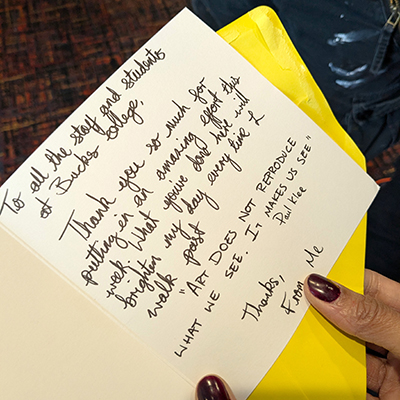 To all the staff and students
at Bucks College,
Thank you so much for
putting in an amazing effort this
week. What you've done here will
brighten my day every time I
walk past
"ART DOES NOT REPRODUCE
WHAT WE SEE. IT MAKES US SEE"
Paul Klee
Thanks,
From Me